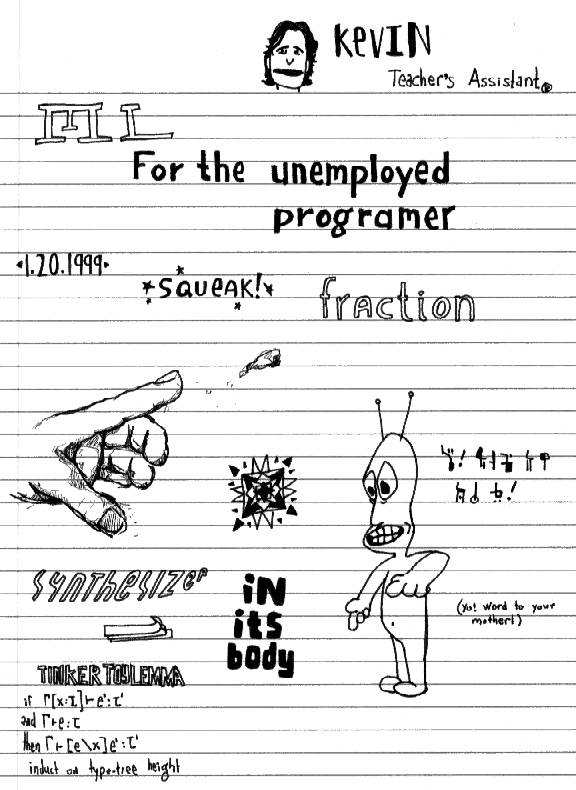 KEVIN
Teacher's Assistant
ML
For the unemployed
programer
1.20.1999
*squEAK!*
fraction
synthesizer
iN
its
body
(Yo! Word to your
mother!)
TINKERTOYLEMMA
if Γ[x:τ]⊢e':τ'
and Γ⊢e:τ
then Γ⊢[e\x]e':τ'
induct on type-tree height